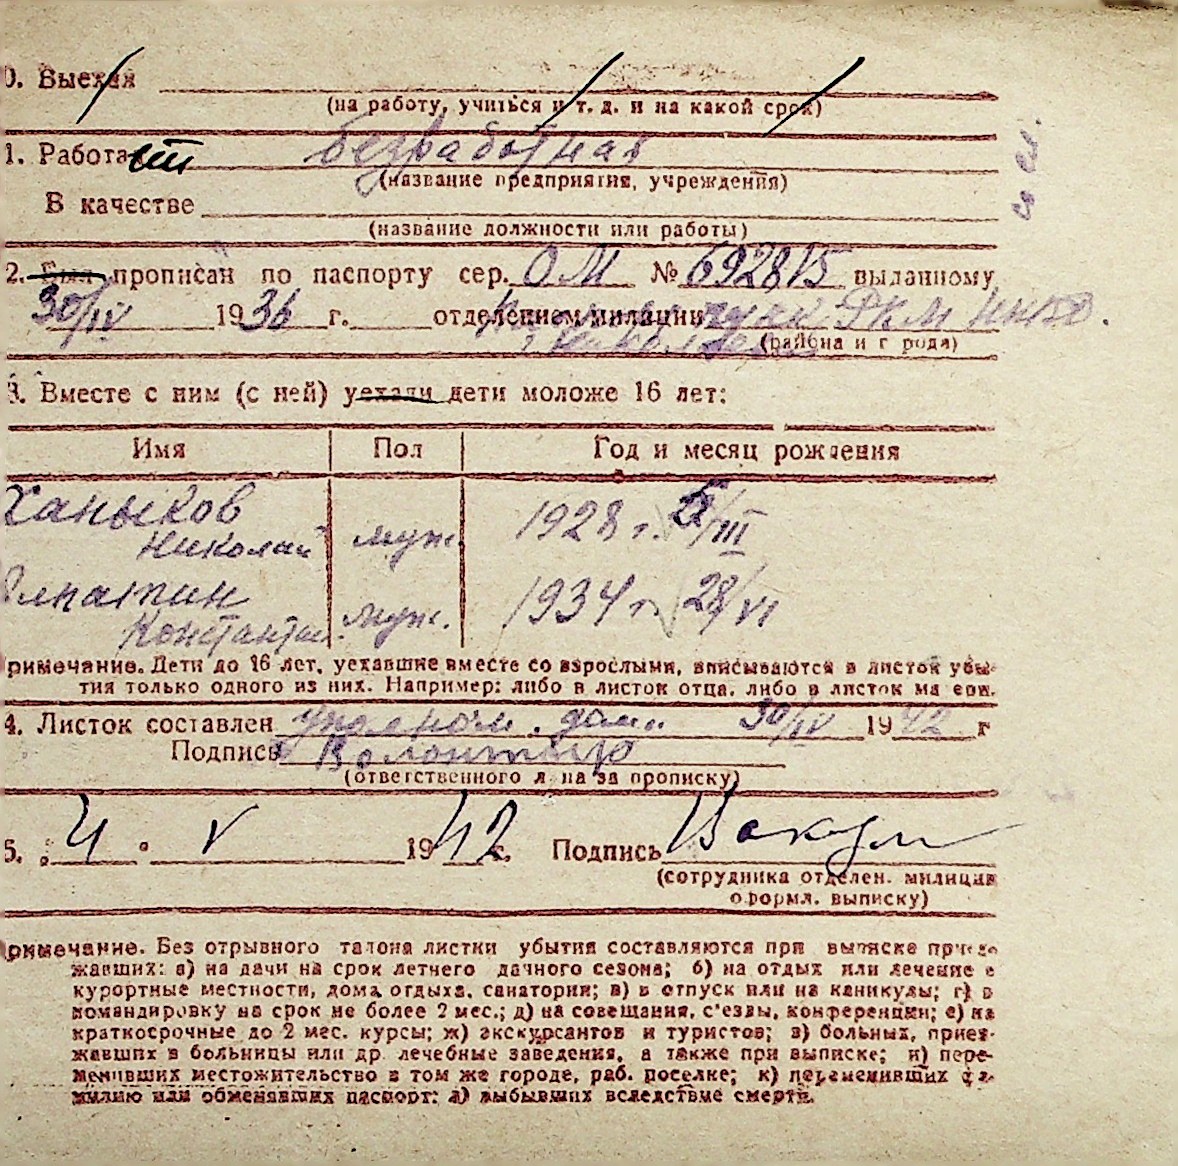 0. Выехал
(на работу, учиться и т. д. и на какой срок)
1. Работа безработная
(название предприятия, учреждения)
В качестве
(название должности или работы)
2. Был прописан по паспорту сер. ОМ № 692815 выданному
30/IV 1936 г. отделением милиции РКМ НКВД.
(района и г рода)
3. Вместе с ним (с ней) уехали дети моложе 16 лет:
Имя Пол Год и месяц рождения
Ханыков
Николай муж. 1928 г. 5/III
Константин муж. 1934 г. 28/VI
римечание. Дети до 16 лет, уехавшие вместе со взрослыми, вписываются в листок убы-
тия только одного из них. Например: либо в листок отца, либо в листок ма ери.
4. Листок составлен уполном. дом. 30/IV 1942 г
Подпись
(ответственного л на за прописку)
5. 4. V 1942 г. Подпись
(сотрудника отделен. милиции
оформл. выписку)
римечание. Без отрывного талона листки убытия составляются при выписке приез-
жавших: а) на дачи на срок летнего дачного сезона; б) на отдых или лечение в
курортные местности, дома отдыха, санатории; в) в отпуск или на каникулы; г) в
командировку на срок не более 2 мес.; д) на совещания, с'езды, конференции; е) на
краткосрочные до 2 мес. курсы; ж) экскурсантов и туристов; з) больных, приез-
жавших в больницы или др лечебные заведения, а также при выписке; и) пере-
менивших местожительство в том же городе, раб. поселке; к) переменивших фа-
милию или обменявших паспорт; л) выбывших вследствие смерти.